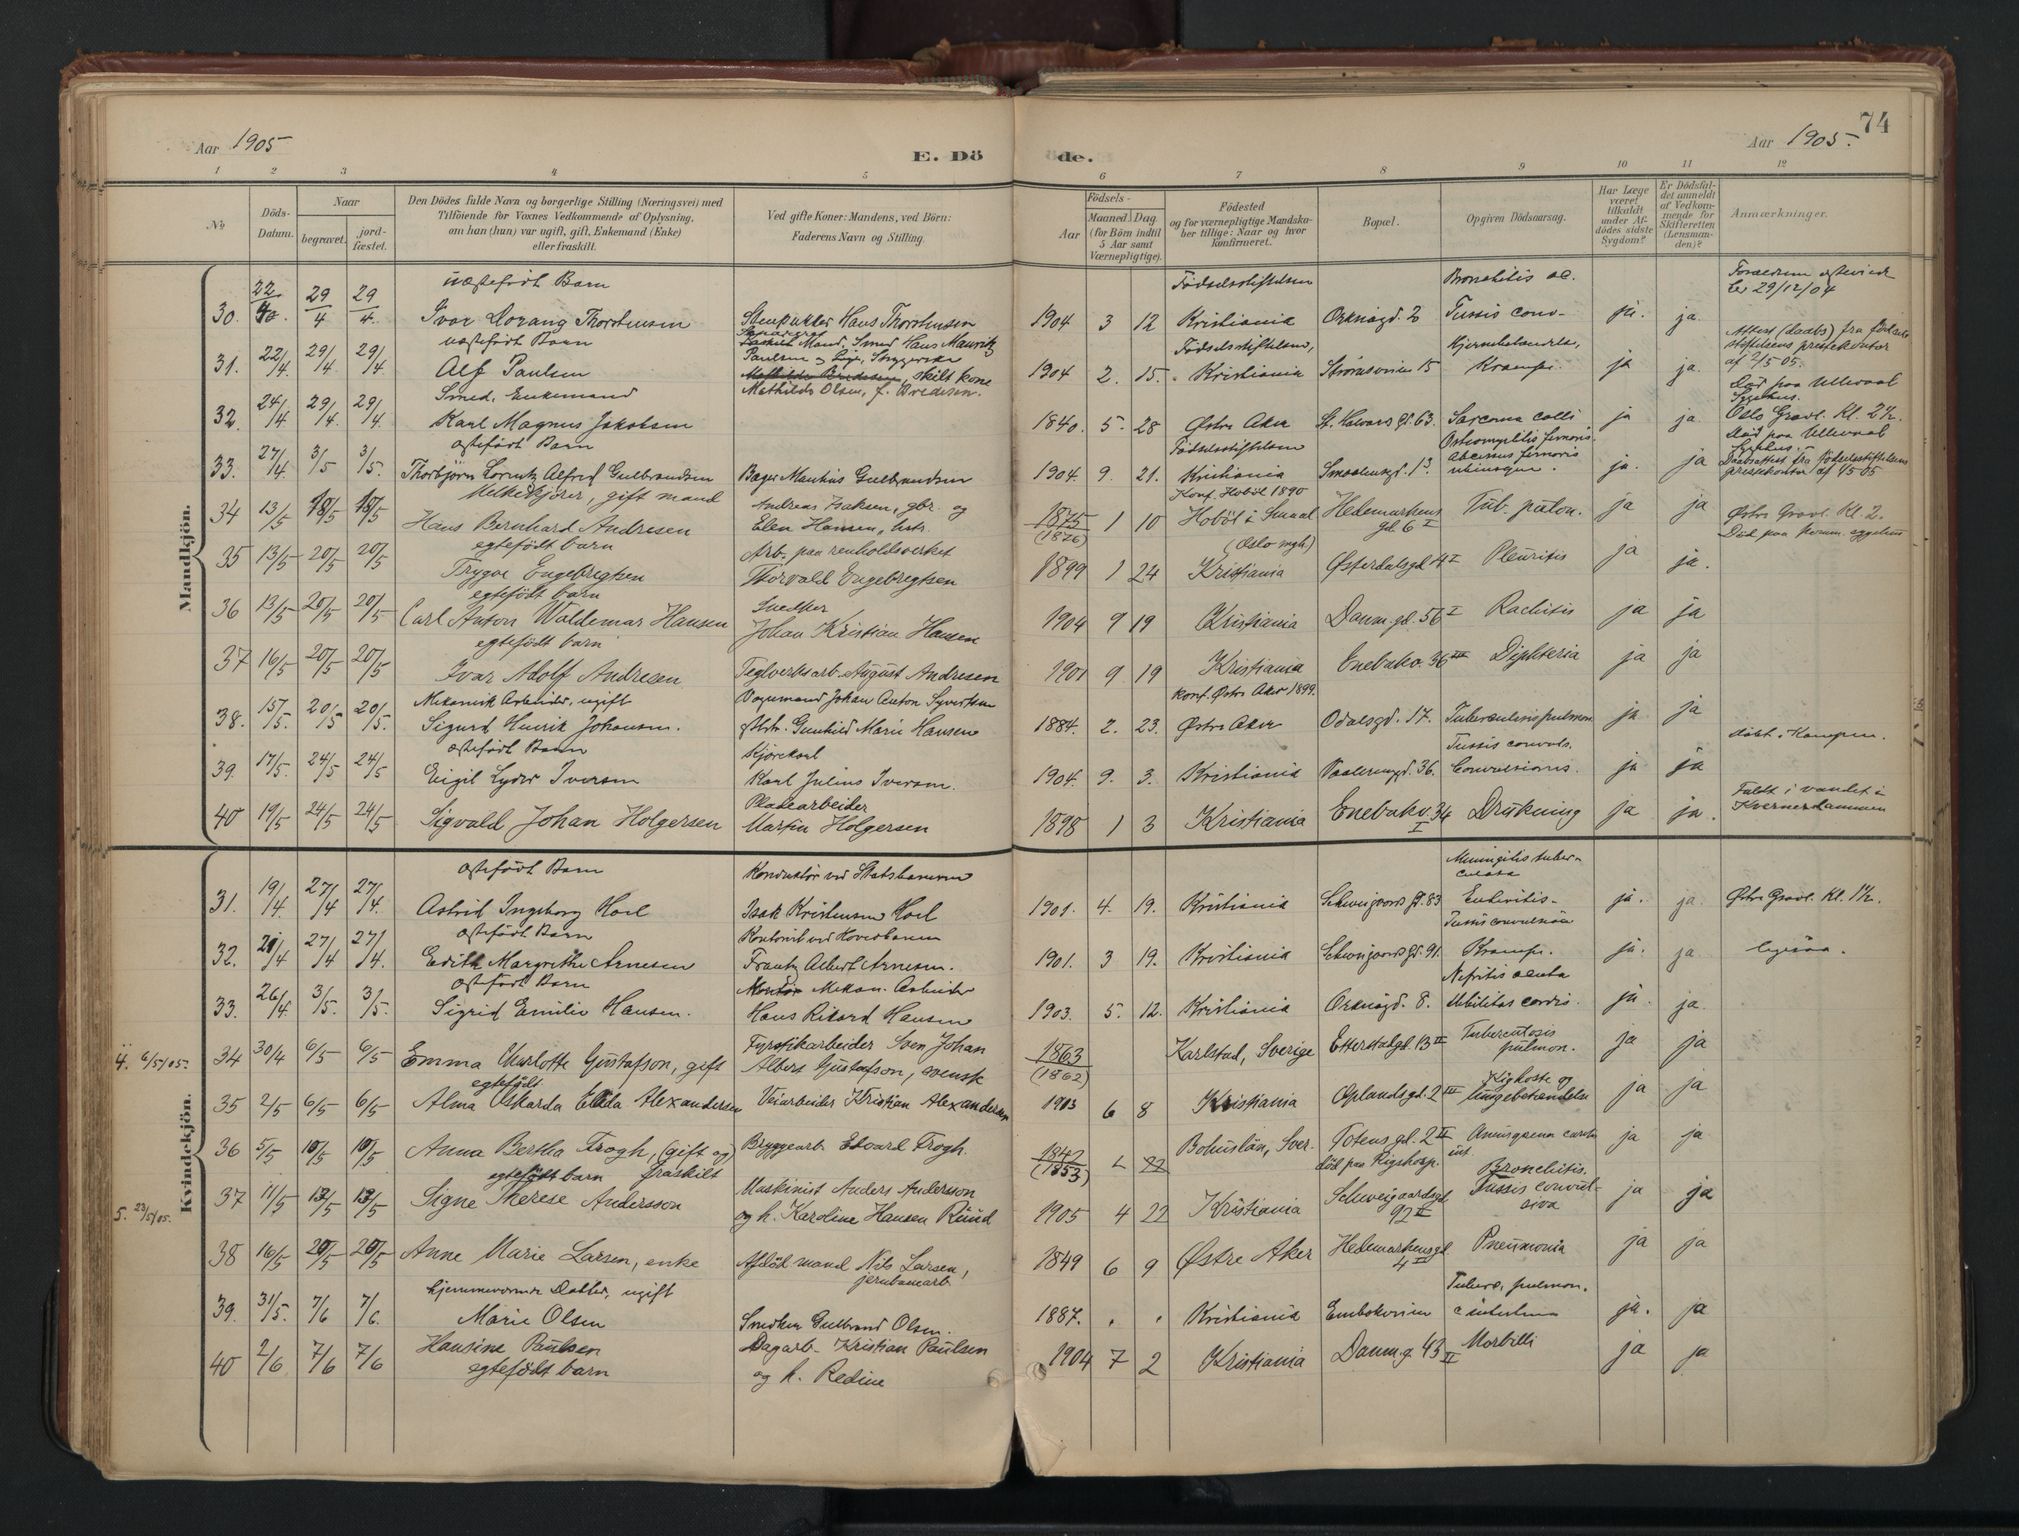 Aar 1905
E. Dö
de.
74
Aar 1905.
1 2 3 4 5 6 7 8 9 10 11 12
No
Döds-Datum.
Naar
begravet.
jord-fæstet.
Den Dödes fulde Navn og borgerlige Stilling (Næringsvei) med
Tilföiende for Voxnes Vedkommende af Oplysning,
om han (hun) var ugift, gift, Enkemand (Enke)
eller fraskilt.
Ved gifte Koner: Mandens, ved Börn:
Faderens Navn og Stilling.
Födsels-
Aar
Maaned. Dag.
(for Börn indtil
5 Aar samt
Værnepligtige).
Födested
og for værnepligtige Mandska-
ber tillige: Naar og hvor
konfirmeret.
Bopæl.
Opgiven Dödsaarsag.
Har Læge
været
tilkaldt
under Af-
dödes sidste
Sygdom?
Er Dödsfal-
det anmeldt
af Vedkom-
mende for
Skifteretten
(Lensman-
den)?
Anmærkninger.
Mandkjön.
uægtefödt Barn Födselsstiftelsen Bronchitis ac. Foraeldrene
30. 22 29/4 29/4 Ivar Lorang Thorstensen Hans Thorstensen 1904 3 12 Kristiania Orknögd. 2 Tussis conv. ja. ja. 29/12/04
uægtefödt Barn Mand, Smed Hans Mauritz Födselsstiftelsen,
31. 22/4 29/4 29/4 Alf Paulsen Paulsen og 1904 2. 15. Kristiania Strömsveien 15 Krampe. ja ja. af 2/5 05.
skilt kone
Smed, Enkemand Mathilde Olsen, f. Bredesen. Död paa Ullevaal
Sygehus.
32. 24/4 29/4 29/4 Karl Magnus Jakobsen 1840. 5. 28 Østre Aker St. Halvards gd. 63. Sarcoma colli ja ja. Oslo Gravl. Kl. 2 1/2
ægtefödt Barn Födselsstiftelsen Osteomyelitis femoris. Död paa Ullevaal
Sygehus.
33. 27/4 3/5 3/5. Thorbjörn Lorentz Alfred Gulbrandsen Bager Mauritius Gulbrandsen 1904 9. 21. Kristiania Smaalensgd. 13. Abcessus femoris ja. ja Daabsattest fra Födselsstiftelsens
Melkekjörer, gift mand Andreas Isaksen, gbr. og Konf. Hoböl 1890
34 13/5 18/5 18/5 Hans Bernhard Andresen Elen Hansen, hstr. 1875 1 10 Hoböl i Smaal. Hedemarkens gd. 6 I Tub. pulm. ja ja Østre Gravl. Kl. 2.
(1876)
egtefödt barn Arb. paa renholdsverket (Oslo mgh.)
35 13/5 20/5 20/5 Trygve Engebregtsen Thorvald Engebregtsen 1899 1 24 Kristiania Østerdalsgd 4 I Pleuritis ja ja.
egtefödt barn Snedker
36 13/5 20/5 20/5 Carl Anton Waldemar Hansen Johan Kristian Hansen 1904 9 19 Kristiania Danm.gd. 56 I Rachitis ja ja
egtefödt barn
37 16/5 20/5 20/5 Ivar Adolf Andresen Teglverksarb. August Andresen 1901 9 19 Kristiania Enebakv. 36 III Diphteria ja ja
Mekanisk Arbeider, ugift Vognmand Johan Anton Syvertsen konf. Østre Aker 1899.
38. 15/5. 20/5 20/5. Sigurd Henrik Johansen. Gunhild Marie Hansen 1884. 2. 23. Østre Aker Odalsgd. 17. Tuberculosis pulmon. ja ja
ægtefödt Barn Kjörekarl Tussis convuls. döbt i Kampen.
39. 17/5. 24/5 24/5 Eigil Lyder Iversen Karl Julius Iversen. 1904. 9. 3. Kristiania Vaalerengd. 36. Convulsionis. ja ja
Pladearbeider Faldt i vandet i
40 19/5 24/5 24/5 Sigvald Johan Holgersen Martin Holgersen 1898 1 3 Kristiania Enebakv. 34 I Drukning ja ja. Kvernerdammen
Kvindekjön.
ægtefödt Barn Konduktör ved Statsbanerne Meningitis tuber-
culosa
31. 19/4. 27/4 27/4. Astrid Ingeborg Hoel Isak Kristensen Hoel 1901. 4. 19. Kristiania Schweigaards gd. 83 Enteritis ja. ja. Østre Gravl. Kl. 1 1/2.
ægtefödt Barn Kontorist ved Hovedbanen Tussis convulsiva
32. 21/4 27/4 27/4. Edith Margrethe Arnesen Frantz Albert Arnesen. 1901. 3 19. Kristiania Schweigaards gd. 91. Krampe. ja. ja ligesaa.
ægtefödt Barn Mekan. Arbeider Nefritis acuta
33. 26/4 3/5. 3/5. Sigrid Emilie Hansen. Hans Rikard Hansen 1903. 5. 12. Kristiania Orknögd. 8. Debilitas cordis. ja. ja.
4. 6/5/05. 34 30/4 6/5 6/5 Emma Charlotte Gustafson, gift Fyrstikarbeider Sven Johan 1863 Karlstad, Sverige Etterstadgd. 13 II Tuberculosis pulmon. ja ja
Albert Gustafson, svensk (1862)
egtefödt Kighoste og
35 2/5 6/5 6/5 Alma Oskarda Elida Alexandersen Veiarbeider Kristian Alexandersen 1903 6 8 Kristiania Oplandsgd. 2 III lungebetændelse ja ja
36 5/5 10/5 10/5 Anna Bertha Frogh, (gift og) Bryggearb. Edvard Frogh. 1842 22 Bohuslän, Sver. Totens gd. 2 II ja ja
fraskilt (1853) död paa Rigshosp.
egtefödt barn Maskinist Anders Andersson Bronchitis.
5. 23/5/05. 37 11/5 13/5 13/5 Signe Therese Andersson og h. Karoline Hansen Ruud 1905 4 22 Kristiania Schweigaardsgd. 92 II Tussis convul-
siva ja ja
38 16/5 20/5 20/5 Anne Marie Larsen, enke Afdöd mand Nils Larsen, jernbanearb. 1849 6 9 Østre Aker Hedemarkensgd. 4 II Pneumonia ja ja
hjemmeværende Datter, ugift Tuberc. pulmon.
39. 31/5. 7/6 7/6. Marie Olsen Snedker Gulbrand Olsen. 1887. Kristiania Enebakveien ja. ja
40 2/6 7/6 7/6 Hansine Paulsen Dagarb. Kristian Paulsen 1904 7 2 Kristiania Danm.g. 43 II Morbilli ja ja
egtefödt barn og h. Redine